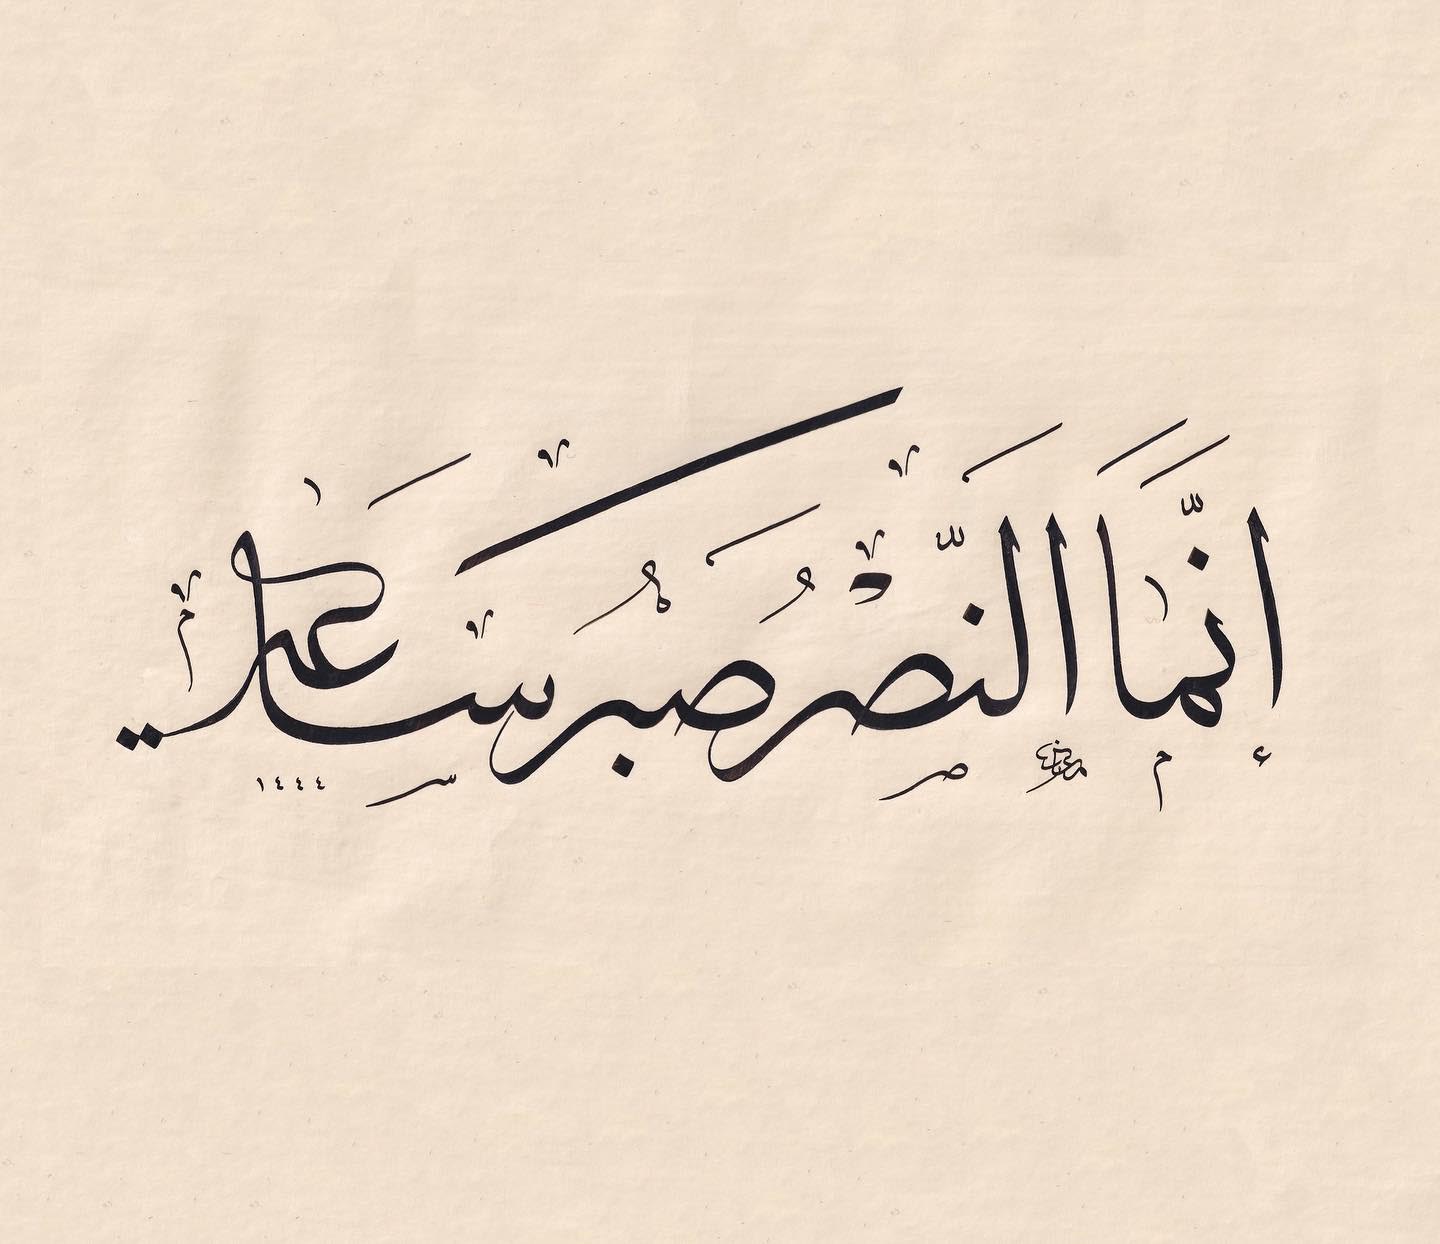 إِنَّمَا النَّصْرُ صَبْرُ سَاعَةٍ
١٤٤٤